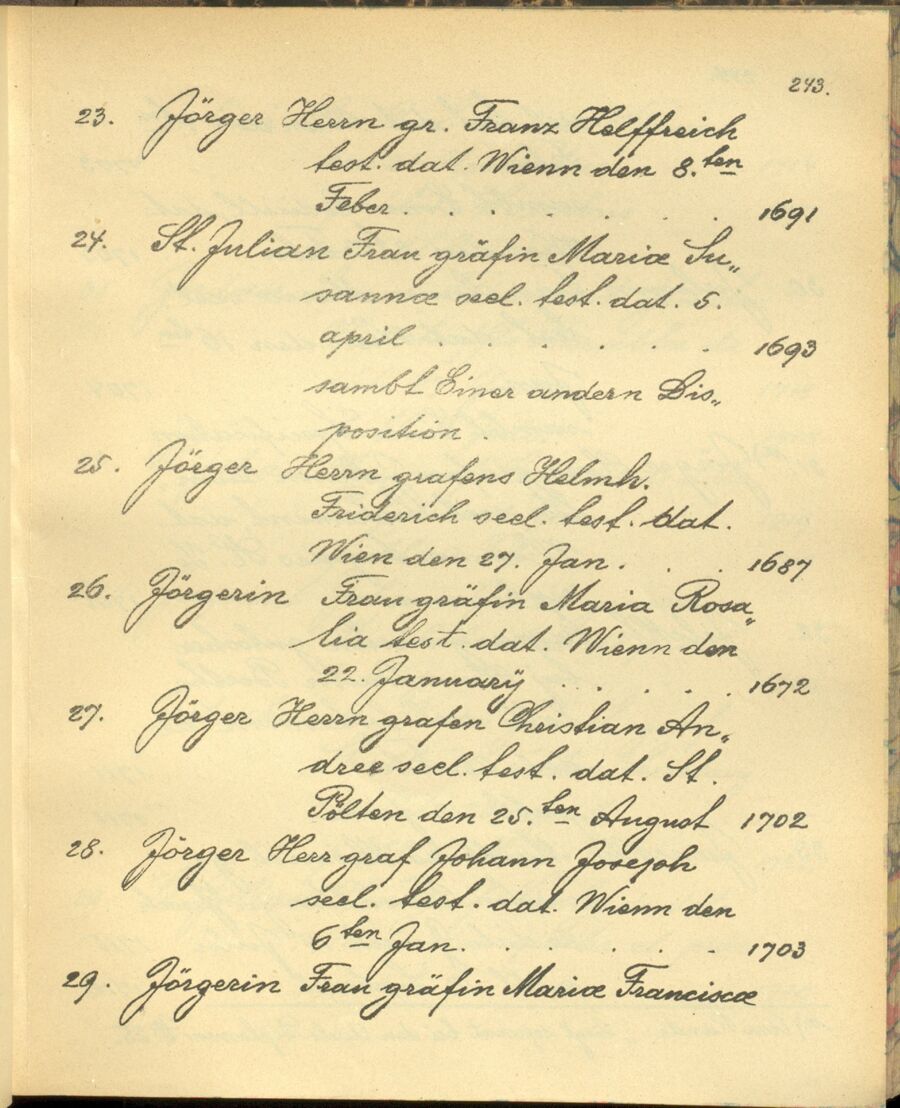 243.
23. Jörger Herrn gr. Franz Helffreich
test. dat. Wienn den 8.ten
Feber . . . . . . . 1691
24. St. Julian Frau gräfin Mariæ Su„
sannæ seel. test. dat. 5.
april . . . . . . . 1693
sambt Einer andern Dis„
position .
25. Jörger Herrn grafens Helmh.
Friderich seel. test. dat.
Wien den 27. Jan . . . 1687
26. Jörgerin Frau gräfin Maria Rosa„
lia test. dat. Wienn den
22. January . . . . . . 1672
27. Jörger Herrn grafen Christian An„
dree seel. test. dat. St.
Pölten den 25.ten August 1702
28. Jörger Herr graf Johann Joseph
seel. test. dat. Wienn den
6ten Jan. . . . . . . 1703
29. Jörgerin Frau gräfin Mariæ Franciscæ